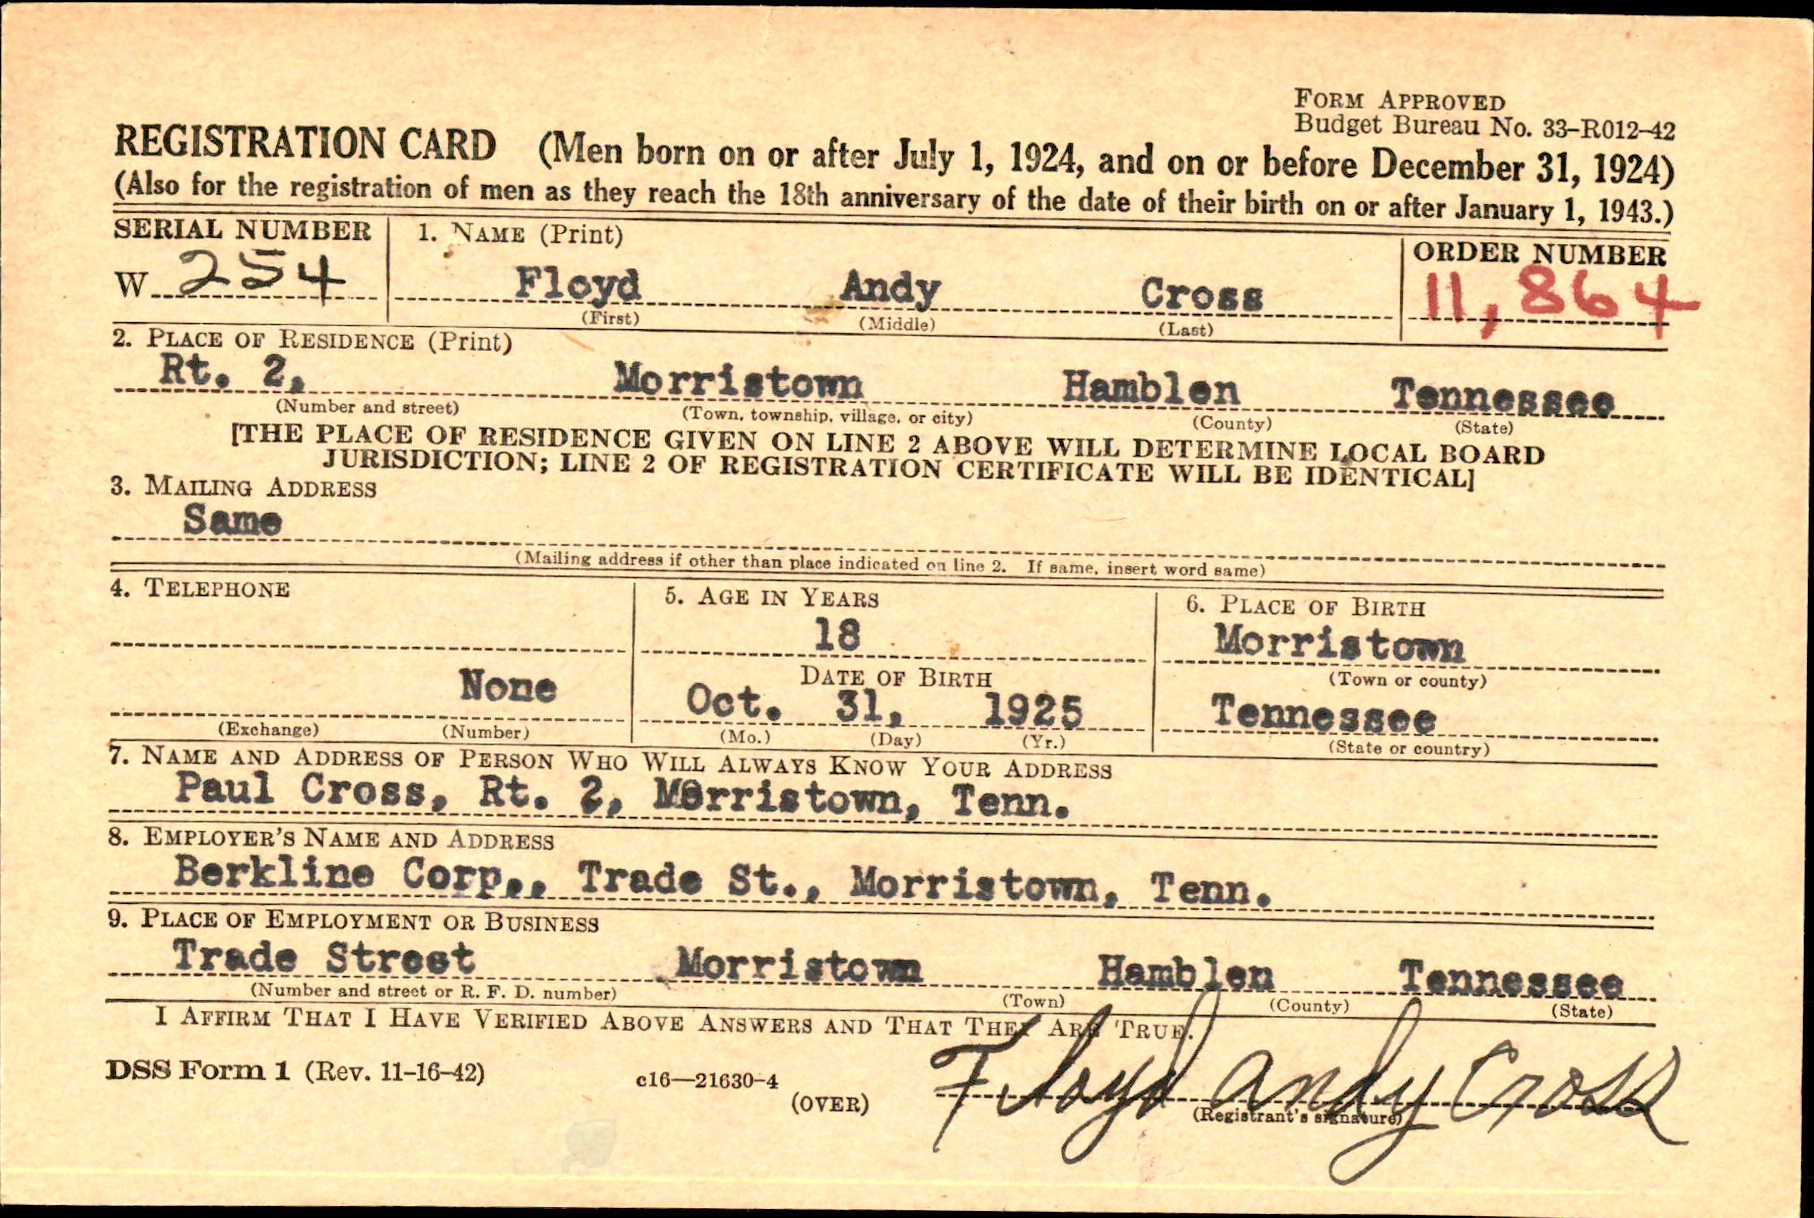 FORM APPROVED
Budget Bureau No. 33–R012–42
REGISTRATION CARD (Men born on or after July 1, 1924, and on or before December 31, 1924)
(Also for the registration of men as they reach the 18th anniversary of the date of their birth on or after January 1, 1943.)
SERIAL NUMBER 1. NAME (Print) ORDER NUMBER
W 254 Floyd Andy Cross 11,864
(First) (Middle) (Last)
2. PLACE OF RESIDENCE (Print)
Rt. 2, Morristown Hamblen Tennessee
(Number and street) (Town, township, village, or city) (County) (State)
[THE PLACE OF RESIDENCE GIVEN ON LINE 2 ABOVE WILL DETERMINE LOCAL BOARD
JURISDICTION; LINE 2 OF REGISTRATION CERTIFICATE WILL BE IDENTICAL]
3. MAILING ADDRESS
Same
(Mailing address if other than place indicated on line 2. If same, insert word same)
4. TELEPHONE 5. AGE IN YEARS 6. PLACE OF BIRTH
18 Morristown
DATE OF BIRTH (Town or county)
None Oct. 31, 1925 Tennessee
(Exchange) (Number) (Mo.) (Day) (Yr.) (State or country)
7. NAME AND ADDRESS OF PERSON WHO WILL ALWAYS KNOW YOUR ADDRESS
Paul Cross, Rt. 2, Morristown, Tenn.
8. EMPLOYER'S NAME AND ADDRESS
Berkline Corp., Trade St., Morristown, Tenn.
9. PLACE OF EMPLOYMENT OR BUSINESS
Trade Street Morristown Hamblen Tennessee
(Number and street or R. F. D. number) (Town) (County) (State)
I AFFIRM THAT I HAVE VERIFIED ABOVE ANSWERS AND THAT THEY ARE TRUE.
DSS Form 1 (Rev. 11-16-42) c16—21630-4 Floyd Andy Cross
(OVER) (Registrant's signature)